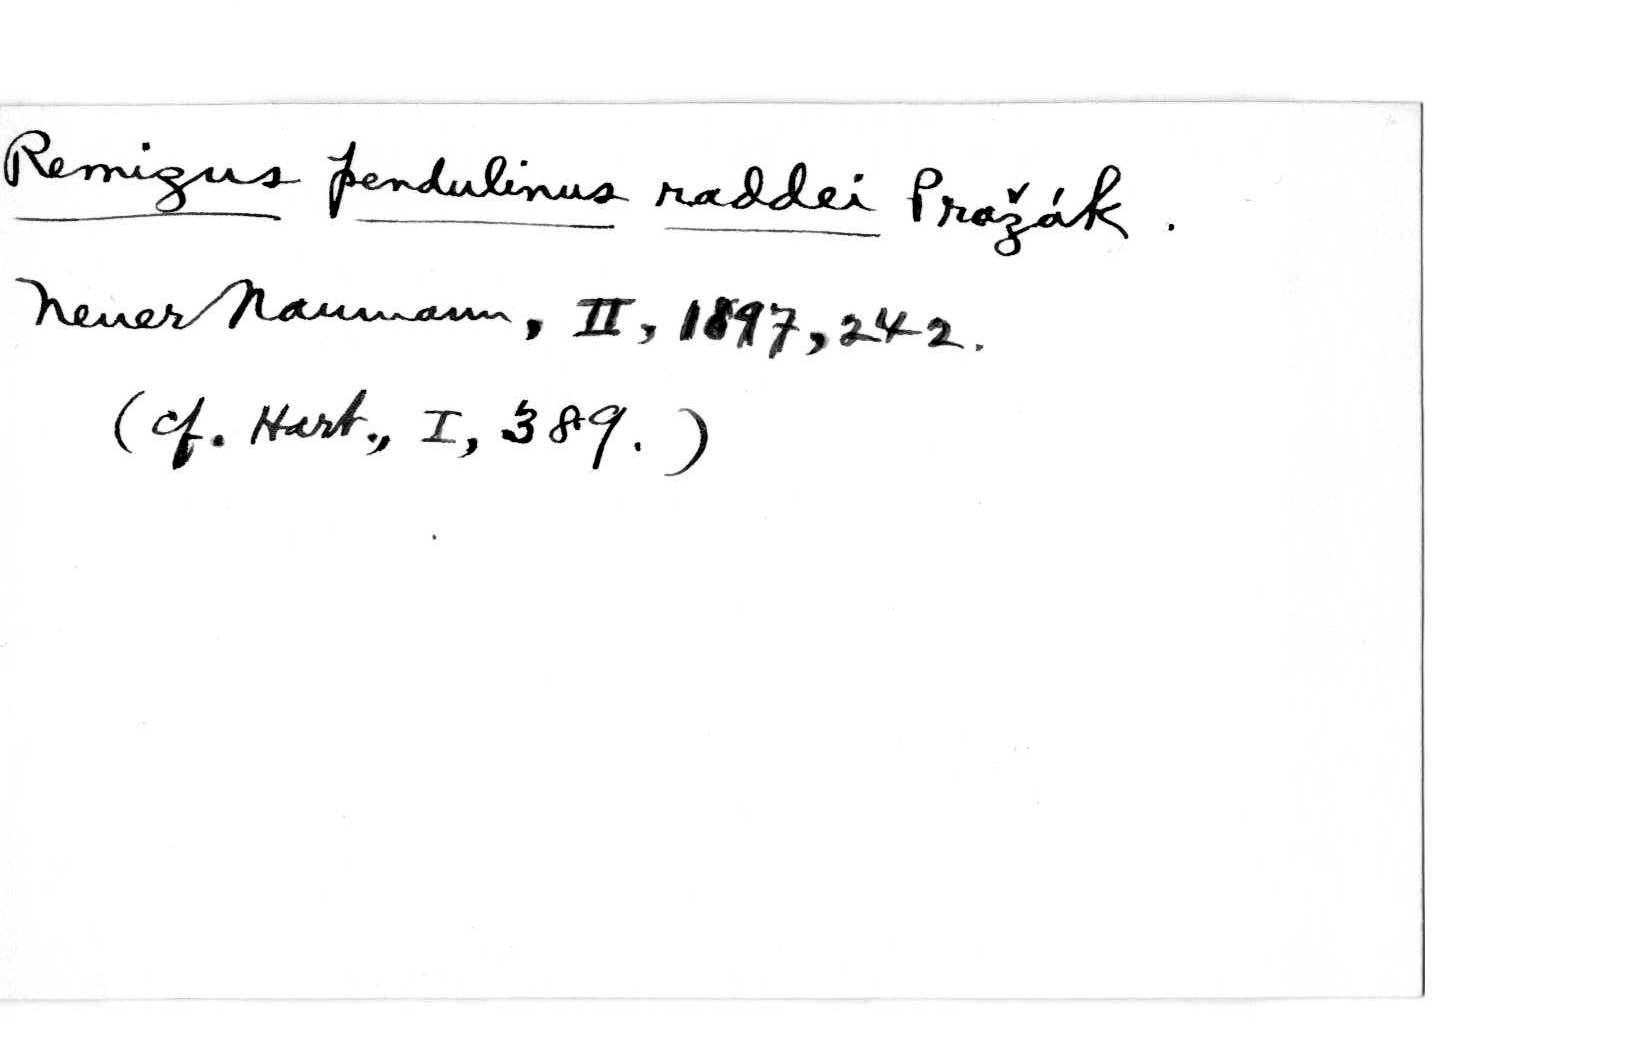 Remizus pendulinus raddei Pražák.
Neuer Naumann, II, 1897, 242.
(cf. Hart., I, 389.)